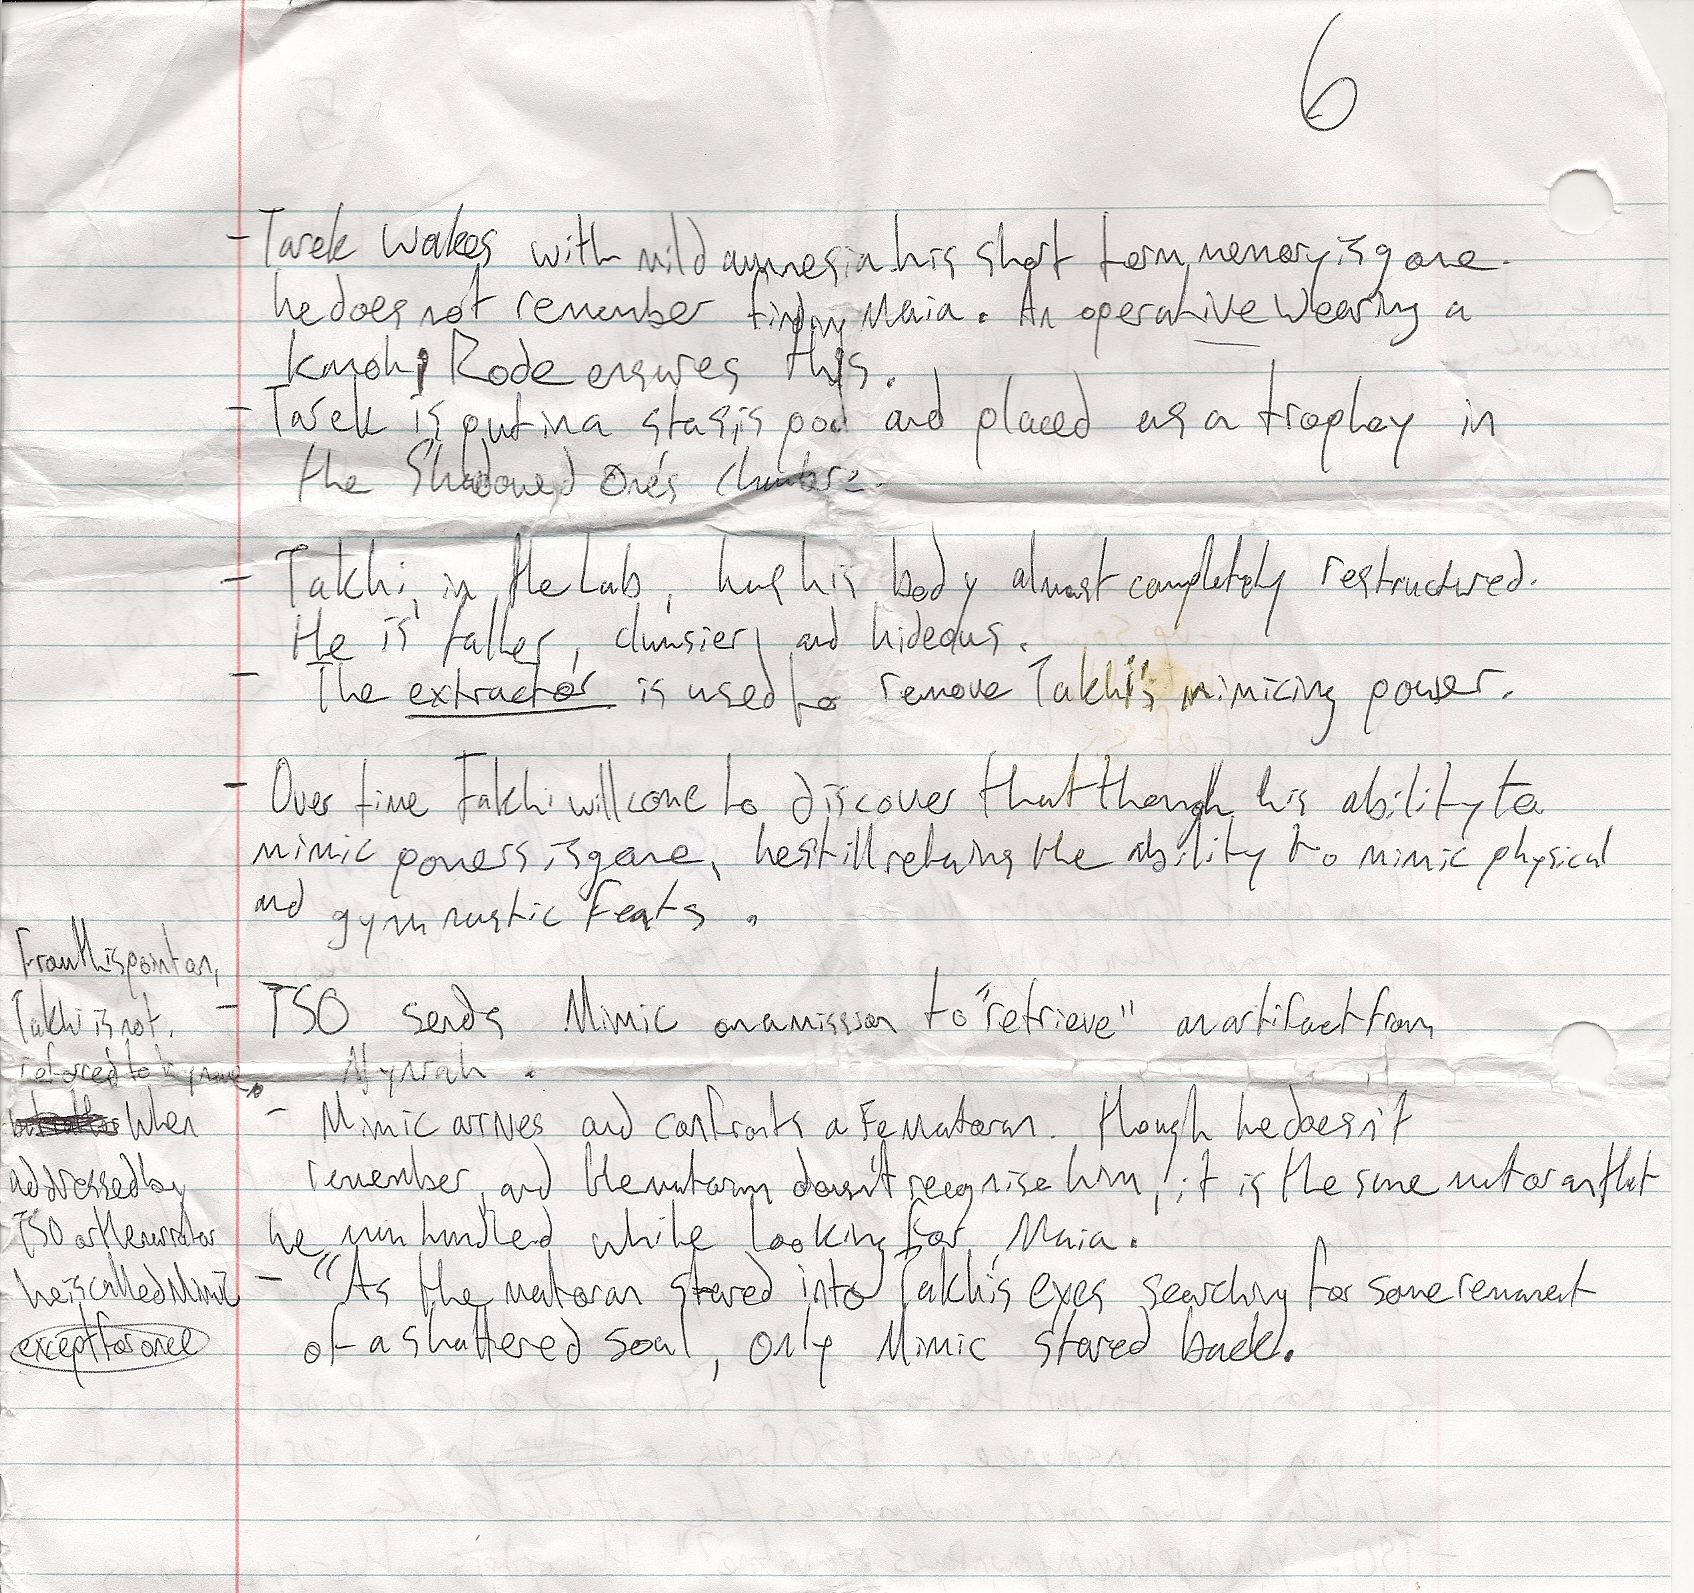 6
- Tarek wakes with mild amnesia. his short term memory is gone.
he does not remember finding Maia. An operative wearing a
kanohi Rode ensures this.
- Tarek is put in a stasis pod and placed as a trophey in
the Shadowed One's chambre.
- Takhi, in the Lab, has his body almost completely restructured.
He is taller, clumsier, and hideous.
- The extractor is used to remove Takhi's mimicing power.
- Over time Takhi will come to discover that though his ability to
mimic powers is gone, he still retains the ability to mimic physical
and gymnastic feats.
- TSO sends Mimic on a mission to "retrieve" an artifact from
Nynrah.
- Mimic arrives and confronts a Fe Matoran. though he doesn't
remember, and the matoran doesn't recognise him, it is the same matoran that
he manhandled while looking for Maia.
- "As the matoran stared into Takhi's eyes searching for some remnant
of a shattered soul, only Mimic stared back.
From this point on,
Takhi is not
referred to by name
When
addressed by
TSO or the narrator
he is called Mimic
except for once